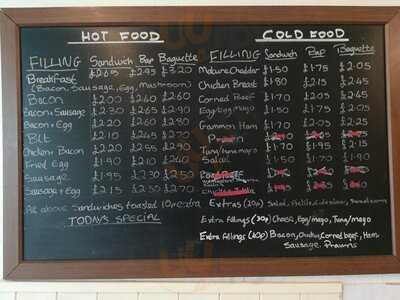 HOT FOOD
FILLING Sandwich Bap Baguette
Breakfast £2.65 £2.95 £3.20
(Bacon, Sausage, Egg, Mushroom)
Bacon £2.00 £2.60 £2.60
Bacon + Sausage £2.30 £2.65 £2.90
Bacon + Egg £2.20 £2.60 £2.80
BLT £2.10 £2.45 £2.70
Chicken + Bacon £2.20 £2.55 £2.90
Fried Egg £1.90 £2.10 £2.40
Sausage £1.95 £2.30 £2.50
Sausage + Egg £2.15 £2.30 £2.70
All above Sandwiches toasted 10p extra
TODAY'S SPECIAL
COLD FOOD
FILLING Sandwich Bap Baguette
Mature Cheddar £1.50 £1.75 £2.05
Chicken Breast £1.80 £2.15 £2.45
Corned Beef £1.70 £2.05 £2.45
Egg/Egg Mayo £1.50 £1.75 £2.05
Gammon Ham £1.70 £2.05 £2.35
Prawn
Tuna/tuna mayo £1.70 £1.95 £2.15
Salad £1.50 £1.70 £1.90
Extras (20p) Salad, Pickle,
Extra fillings (30p) Cheese, Egg/mayo, Tuna/mayo
Extra fillings (60p) Bacon, Chicken, Corned beef, Ham,
Sausage, Prawns